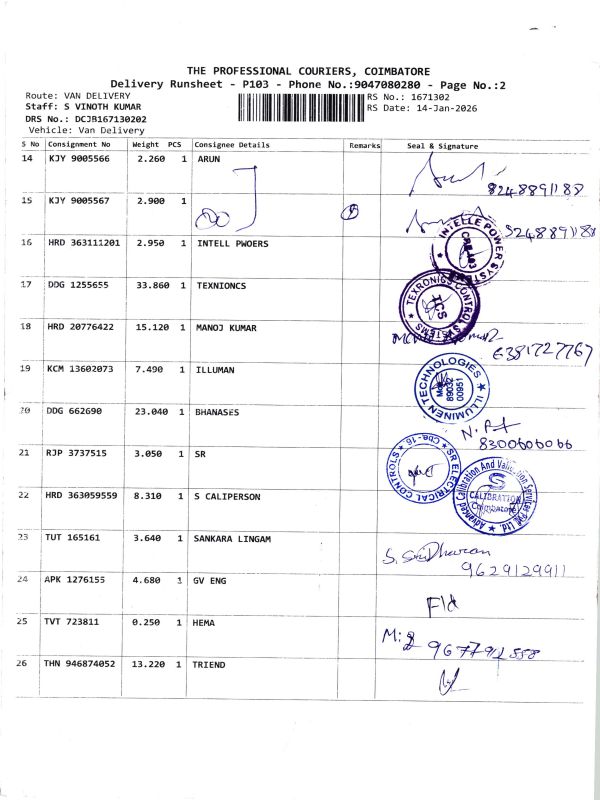 THE PROFESSIONAL COURIERS, COIMBATORE
Delivery Runsheet - P103 - Phone No.:9047080280 - Page No.:2
Route: VAN DELIVERY
RS No.: 1671302
Staff: S VINOTH KUMAR
RS Date: 14-Jan-2026
DRS No.: DCJB167130202
Vehicle: Van Delivery
S No Consignment No Weight PCS Consignee Details Remarks Seal & Signature
14 KJY 9005566 2.260 1 ARUN
8248891188
15 KJY 9005567 2.900 1
8248891188
16 HRD 363111201 2.950 1 INTELL PWOERS
INTELLE POWER SYSTEMS
CBE-103
17 DDG 1255655 33.860 1 TEXNIONCS
TEXRONICS CONTROL SYSTEMS
TCS
18 HRD 20776422 15.120 1 MANOJ KUMAR
6381727767
19 KCM 13602073 7.490 1 ILLUMAN
ILLUMINEN TECHNOLOGIES
89032
00951
20 DDG 662690 23.040 1 BHANASES
8300606066
21 RJP 3737515 3.050 1 SR
SR ELECTRICAL CONTROLS
Cbe-16
22 HRD 363059559 8.310 1 S CALIPERSON
Advanced Calibration And Validation Services Pvt Ltd
CALIBRATION
Coimbatore
23 TUT 165161 3.640 1 SANKARA LINGAM
S. Sridharan
9629129911
24 APK 1276155 4.680 1 GV ENG
25 TVT 723811 0.250 1 HEMA
26 THN 946874052 13.220 1 TRIEND